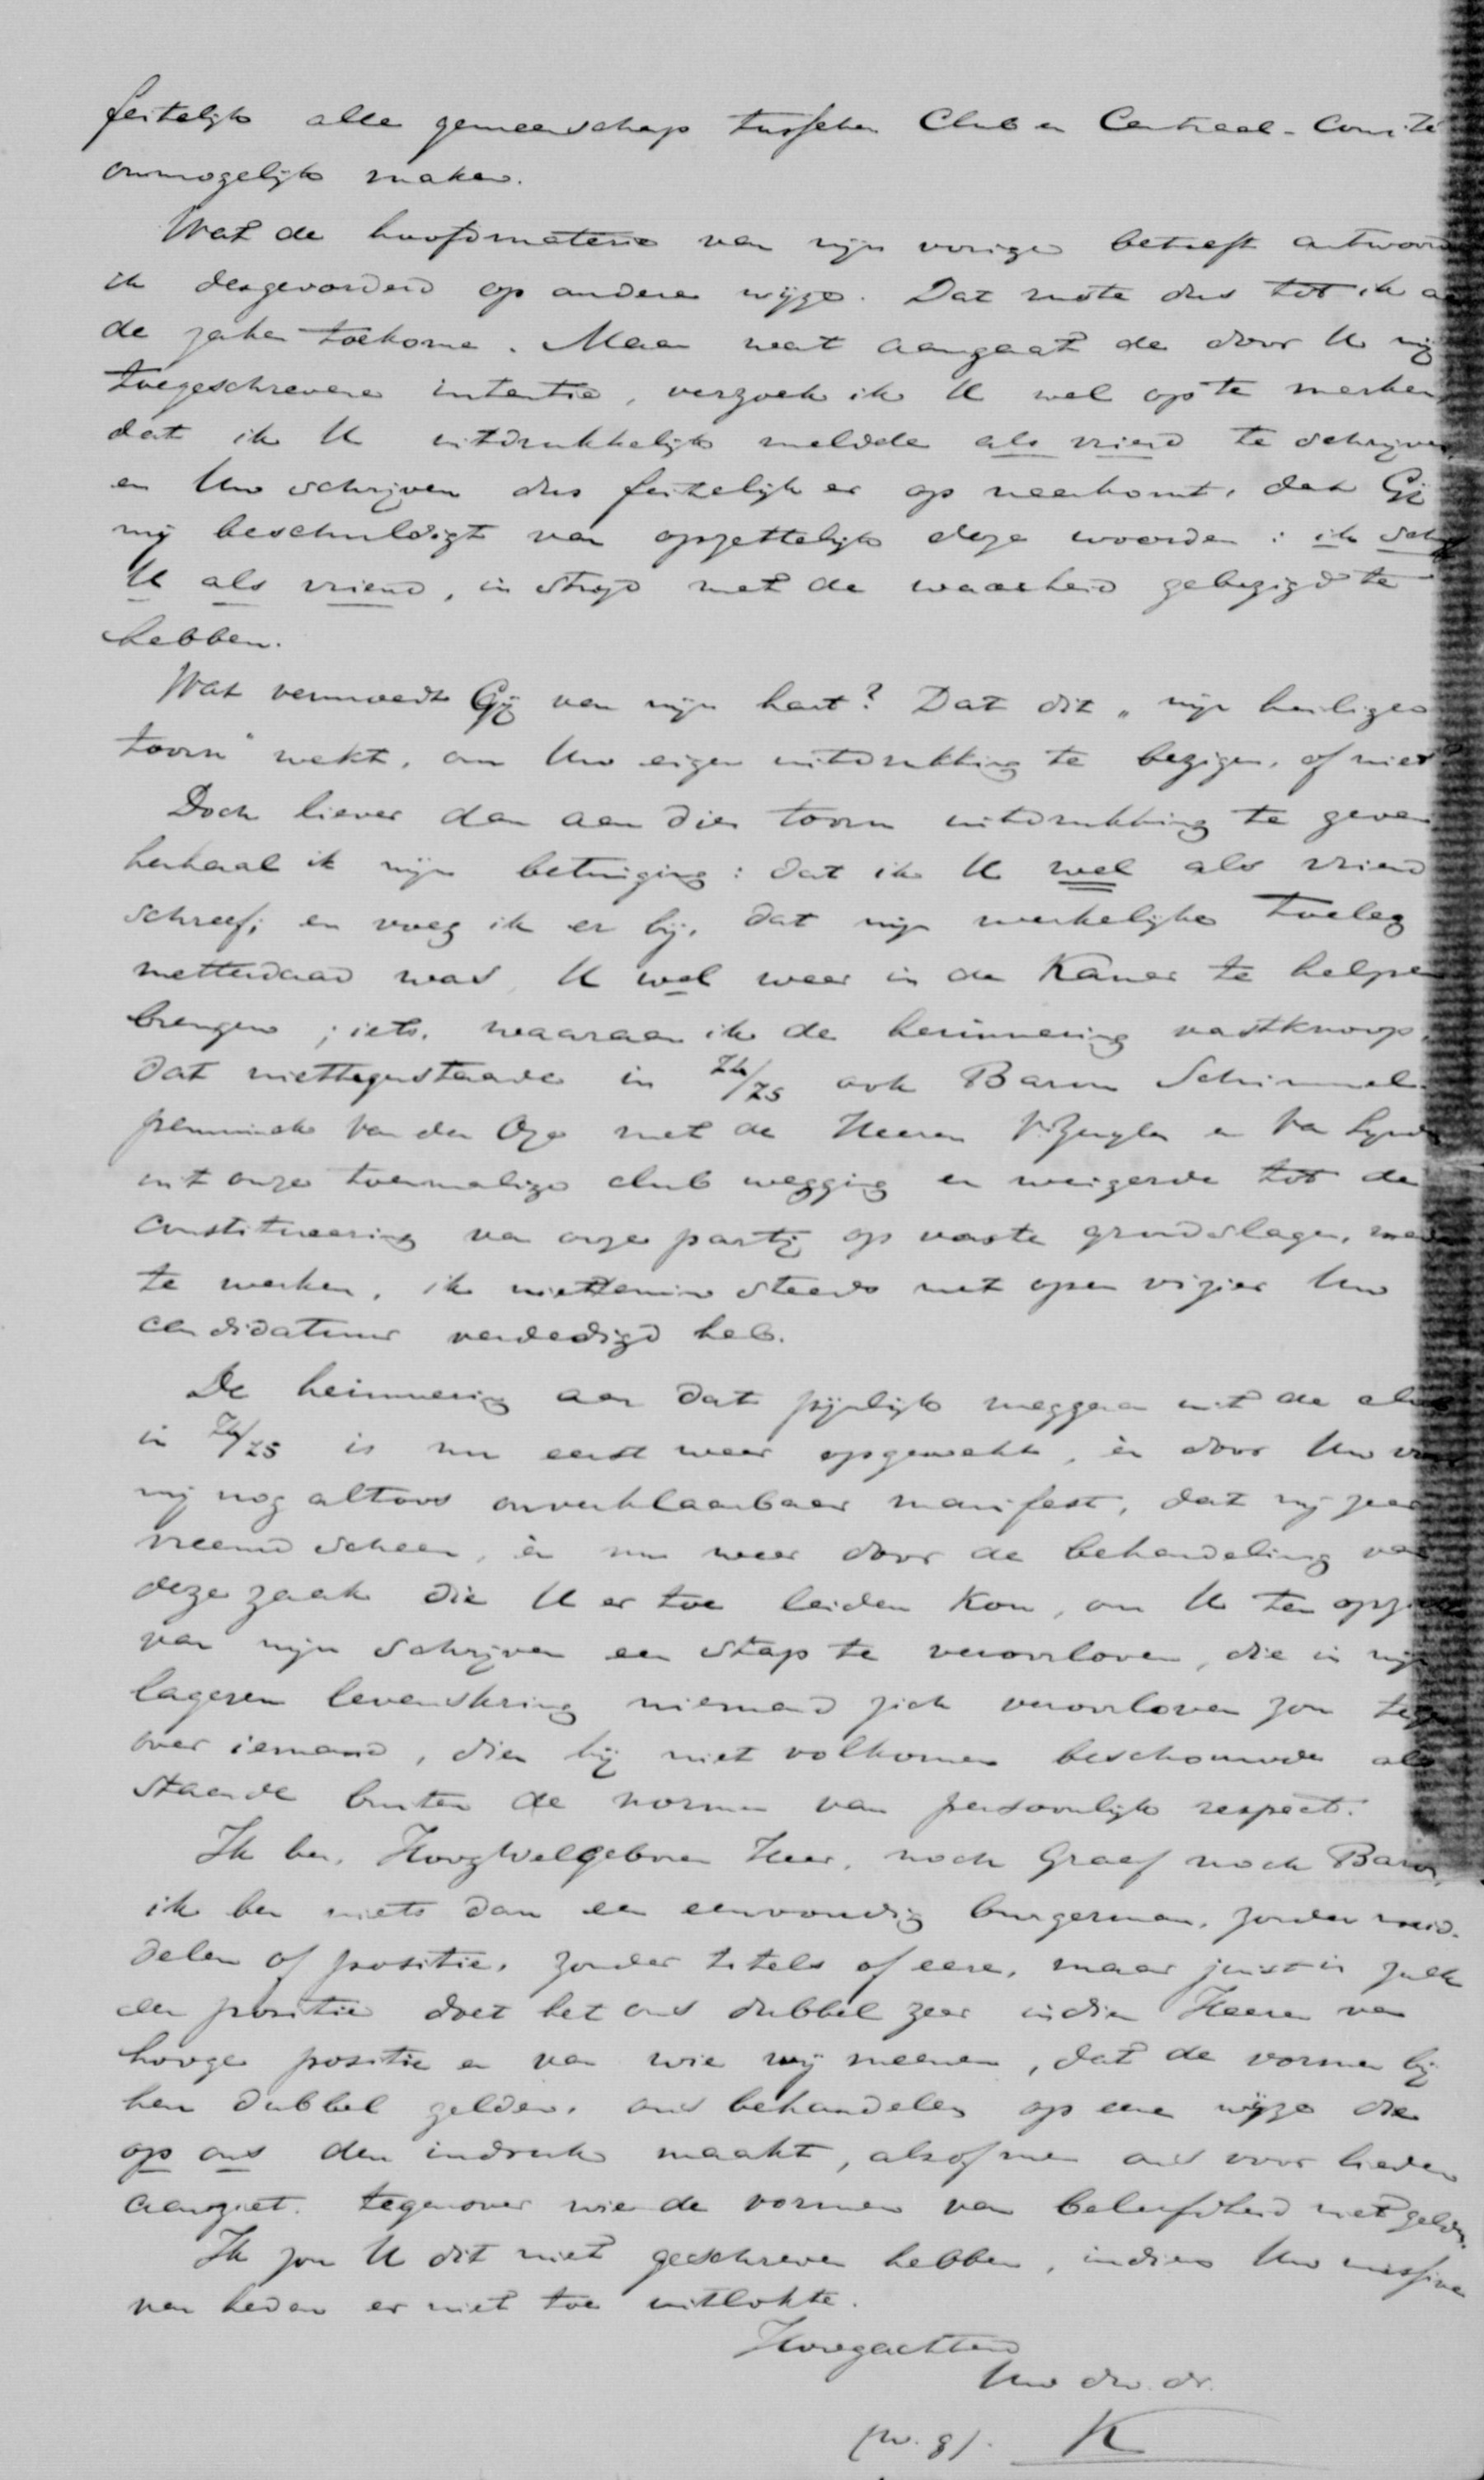 feitelijk alle gemeenschap tusschen Club en Centraal-Comité
onmogelijk maken.
Wat de hoofdmaterie van mijn vorige betreft antwoord
ik desgevorderd op andere wijze. Dat ruste dus tot ik
de zaken toekome. Maar wat aangaat de door U mij
toegeschreven intentie, verzoek ik U wel op te merken
dat ik U uitdrukkelijk meldde als vriend te schrijven,
en Uw schrijven dus feitelijk er op neerkomt, dat Gij
mij beschuldigt van opzettelijk deze woorden: ik schrijf
U als vriend, in strijd met de waarheid gebezigd te
hebben.
Wat vermoedt Gij van mijn hart? Dat dit „mijn heiligen
toorn" wekt, om Uw eigen uitdrukking te bezigen, of niet?
Doch liever dan aan dien toorn uitdrukking te geven
herhaal ik mijn betuiging: dat ik U wel als vriend
schreef; en voeg ik er bij, dat mijn werkelijke toeleg
metterdaad was, U wel weer in de Kamer te helpen
brengen; iets, waaraan ik de herinnering vastknoop,
dat niettegenstaande in 74/75 ook Baron Schimmel-
penninck van der Oye met de Heeren v. Zuylen en van Lynden
uit onze toenmalige club wegging en weigerde tot de
constitueering van onze partij op vaste grondslagen, mede
te werken, ik niettemin steeds met open vizier Uw
candidatuur verdedigd heb.
De herinnering aan dat pijnlijk weggaan uit de club
in 74/75 is nu eerst weer opgewekt, èn door Uw
mij nog altoos onverklaarbaar manifest, dat mij zeer
vreemd scheen, èn nu weer door de behandeling van
deze zaak die U er toe leiden kon, om U ten opzichte
van mijn schrijven een stap te veroorloven, die in mijn
lageren levenskring niemand zich veroorloven zou tegen
over iemand, dien hij niet volkomen beschouwde als
staande buiten de normen van persoonlijk respect.
Ik ben, HoogWelGeboren Heer, noch Graaf noch Baron,
ik ben niets dan een eenvoudig burgerman, zonder mid-
delen of positie, zonder titels of eere, maar juist in zulk
een positie doet het ons dubbel zeer indien Heeren van
hooge positie en van wie wij meenen, dat de vormen bij
hen dubbel gelden, ons behandelen op eene wijze die
op ons den indruk maakt, alsof men ons voor lieden
aanziet, tegenover wie de vormen van beleefdheid niet gelden.
Ik zou U dit niet geschreven hebben, indien Uw missive
van heden er niet toe uitlokte.
Hoogachtend
Uw dw. dr.
(w.g). K